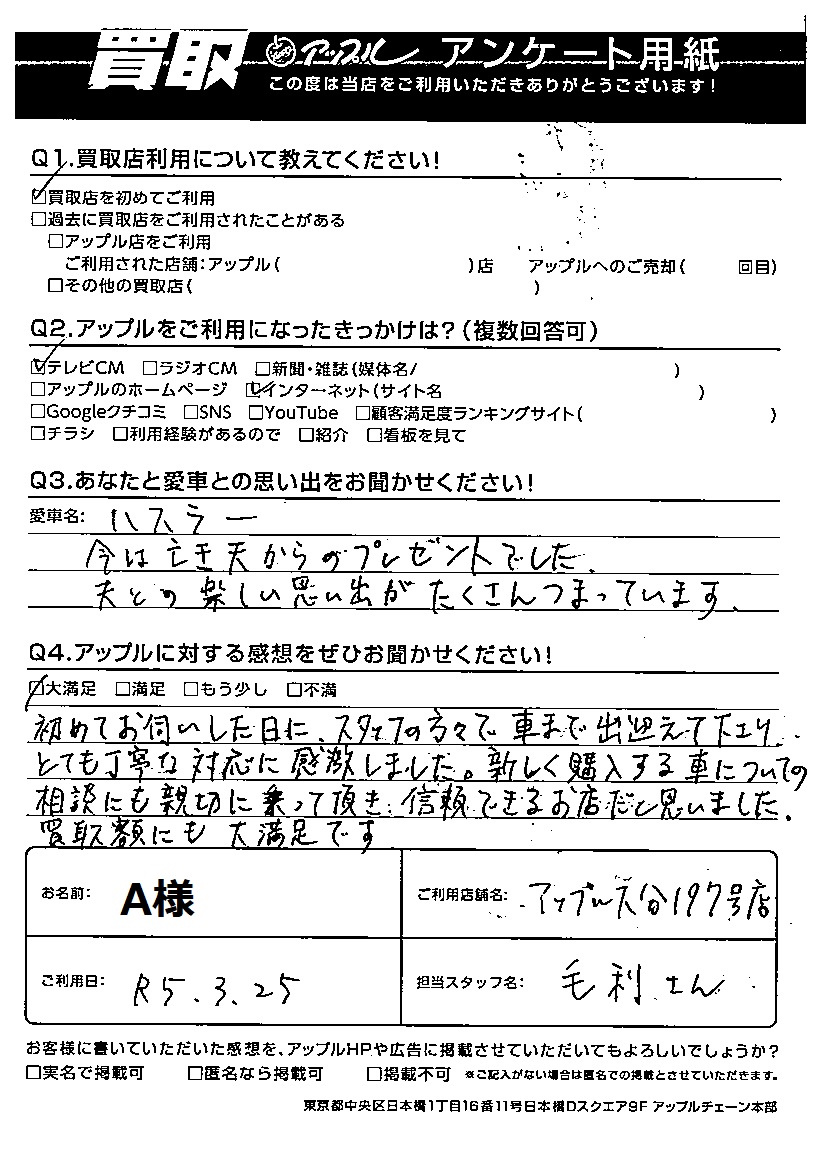 買取 アップル アンケート用紙
この度は当店をご利用いただきありがとうございます!
Q1.買取店利用について教えてください!
☑買取店を初めてご利用
□過去に買取店をご利用されたことがある
□アップル店をご利用
ご利用された店舗:アップル( )店 アップルへのご売却( 回目)
□その他の買取店( )
Q2.アップルをご利用になったきっかけは?(複数回答可)
☑テレビCM □ラジオCM □新聞・雑誌(媒体名/ )
□アップルのホームページ ☑インターネット(サイト名 )
□Googleクチコミ □SNS □YouTube □顧客満足度ランキングサイト( )
□チラシ □利用経験があるので □紹介 □看板を見て
Q3.あなたと愛車との思い出をお聞かせください!
愛車名: ハスラー
今は亡き夫からのプレゼントでした.
夫との楽しい思い出がたくさんつまっています.
Q4.アップルに対する感想をぜひお聞かせください!
☑大満足 □満足 □もう少し □不満
初めてお伺いした日に、スタッフの方々で車まで出迎えて下さり.
とても丁寧な対応に感激しました。新しく購入する車についての
相談にも親切に乗って頂き信頼できるお店だと思いました.
買取額にも大満足です
お名前: A様 ご利用店舗名: アップル大分197号店
ご利用日: R5.3.25 担当スタッフ名: 毛利さん
お客様に書いていただいた感想を、アップルHPや広告に掲載させていただいてもよろしいでしょうか?
□実名で掲載可 □匿名なら掲載可 □掲載不可 ※ご記入がない場合は匿名での掲載とさせていただきます。
東京都中央区日本橋1丁目16番11号日本橋Dスクエア9F アップルチェーン本部